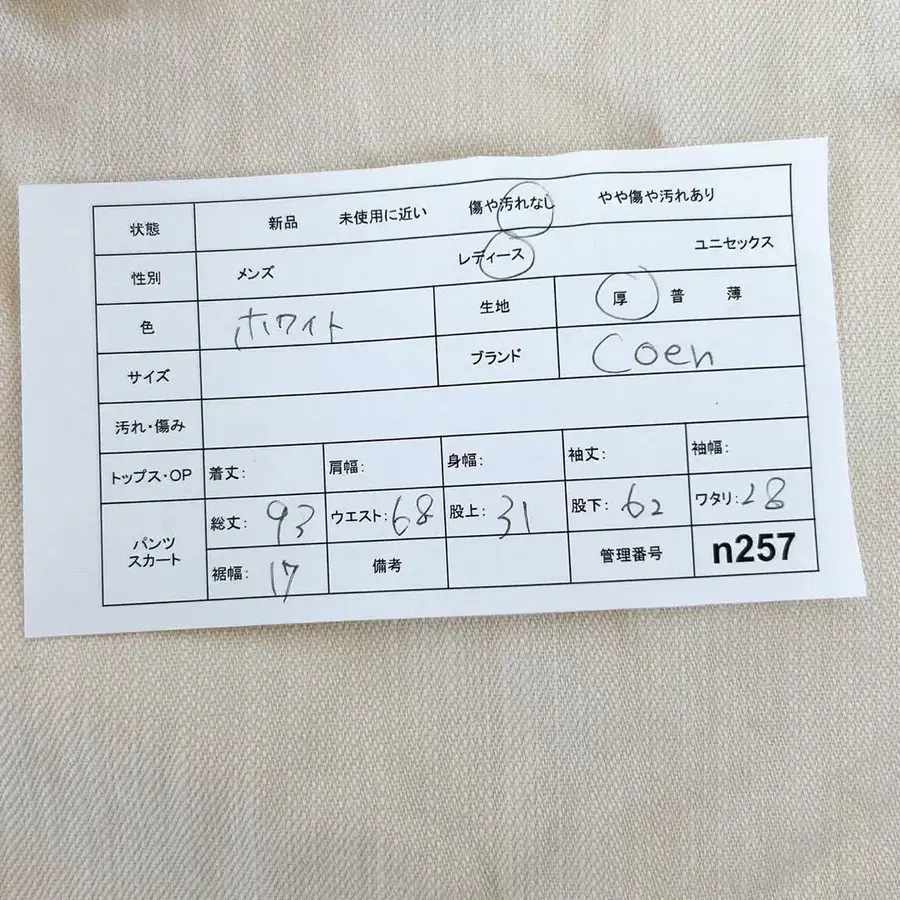 状態 新品 未使用に近い 傷や汚れなし やや傷や汚れあり
性別 メンズ レディース ユニセックス
色 ホワイト 生地 厚 普 薄
サイズ ブランド Coen
汚れ・傷み
トップス・OP 着丈: 肩幅: 身幅: 袖丈: 袖幅:
パンツ スカート 総丈: 93 ウエスト: 68 股上: 31 股下: 62 ワタリ: 28
裾幅: 17 備考 管理番号 n257